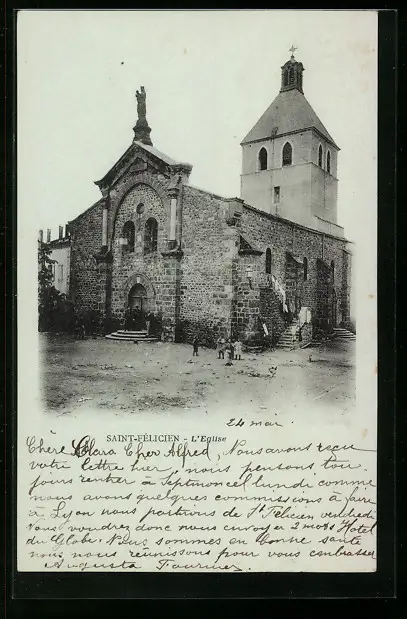 24 mai
SAINT-FÉLICIEN - L'Eglise
Chère Clara Cher Alfred, Nous avons reçu
votre lettre hier, nous pensons tou-
jours rentrer à Septmoncel lundi comme
nous avons quelques commissions à faire
à Lyon nous partirons de St Félicien vendredi
Vous voudrez donc nous envoyer 2 mots Hôtel
du Globe. Nous sommes en bonne santé
nous nous réunissons pour vous embrasser
Augusta Fournier.